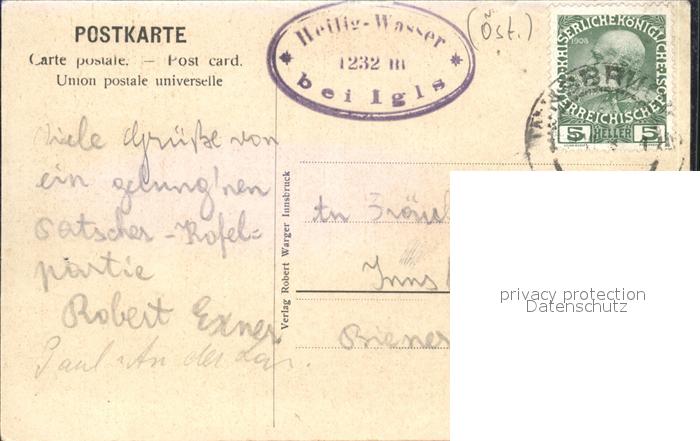 POSTKARTE
Carte postale. — Post card.
Union postale universelle
Heilig-Wasser
1232 m
bei Igls
(Öst.)
KAISERLICHEKÖNIGLICHE
ÖSTERREICHISCHE
1908
5 HELLER 5
Viele Grüße von
ein gelung'nen
Patscher-Kofel-
partie
Robert Exner
Paul
Verlag Robert Warger Innsbruck
An Fräul
Inns
Biener
privacy protection
Datenschutz